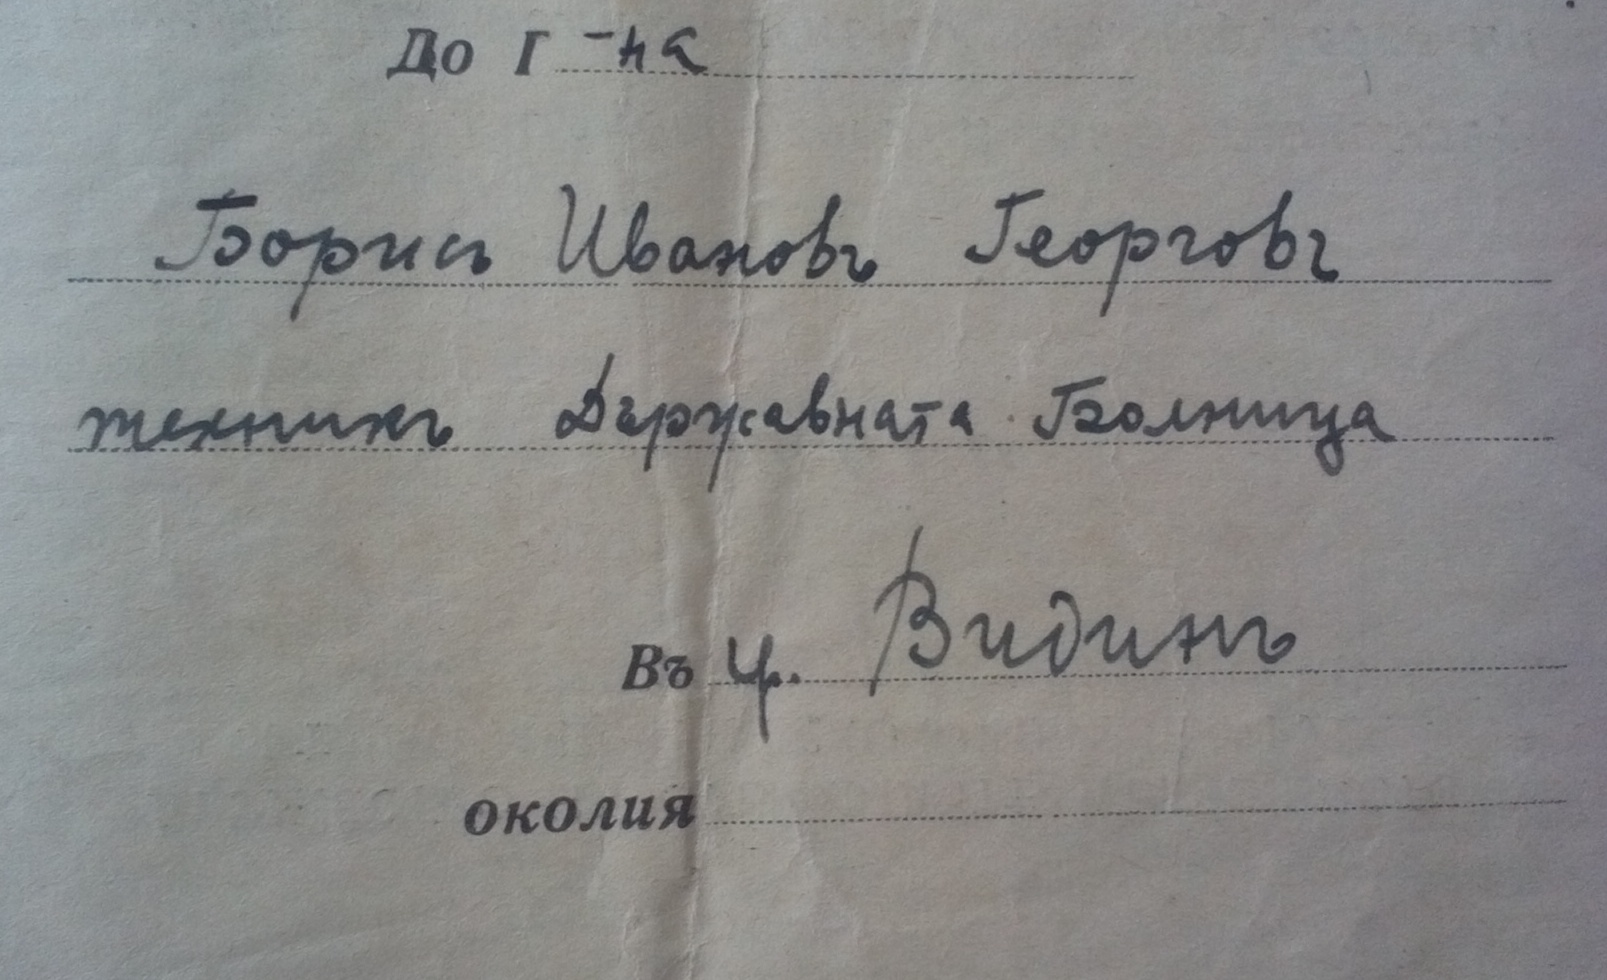 До Г-на
Борисъ Ивановъ Георговъ
техникъ Държавната Болница
Въ гр. Видинъ
околия